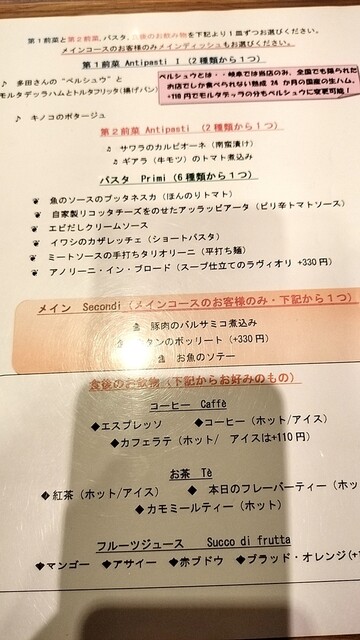 第1前菜と第2前菜、パスタ、食後のお飲物を下記より1皿ずつお選びください。
メインコースのお客様のみメインディッシュもお選びください。
第1前菜 Antipasti Ⅰ (2種類から1つ)
♪ 多田さんの"ペルシュウ"と
モルタデッラハムとトルタフリッタ(揚げパン)
ペルシュウとは・・岐阜では当店のみ、全国でも限られた
お店でしか食べられない熟成24か月の国産の生ハム。
+110円でモルタデッラの分もペルシュウに変更可能!
♪ キノコのポタージュ
第2前菜 Antipasti (2種類から1つ)
♬ サワラのカルピオーネ(南蛮漬け)
♬ ギアラ(牛モツ)のトマト煮込み
パスタ Primi(6種類から1つ)
魚のソースのプッタネスカ(ほんのりトマト)
自家製リコッタチーズをのせたアッラビアータ(ピリ辛トマトソース)
エビだしクリームソース
イワシのカザレッチェ(ショートパスタ)
ミートソースの手打ちタリオリーニ(平打ち麺)
アノリーニ・イン・ブロード(スープ仕立てのラヴィオリ +330円)
メイン Secondi(メインコースのお客様のみ・下記から1つ)
豚肉のバルサミコ煮込み
タンのボッリート(+330円)
お魚のソテー
食後のお飲物(下記からお好みのもの)
コーヒー Caffè
◆エスプレッソ ◆コーヒー(ホット/アイス)
◆カフェラテ(ホット/ アイスは+110円)
お茶 Tè
◆紅茶(ホット/アイス) ◆ 本日のフレーバーティー(ホッ
◆カモミールティー(ホット)
フルーツジュース Succo di frutta
◆マンゴー ◆アサイー ◆赤ブドウ ◆ブラッド・オレンジ(+